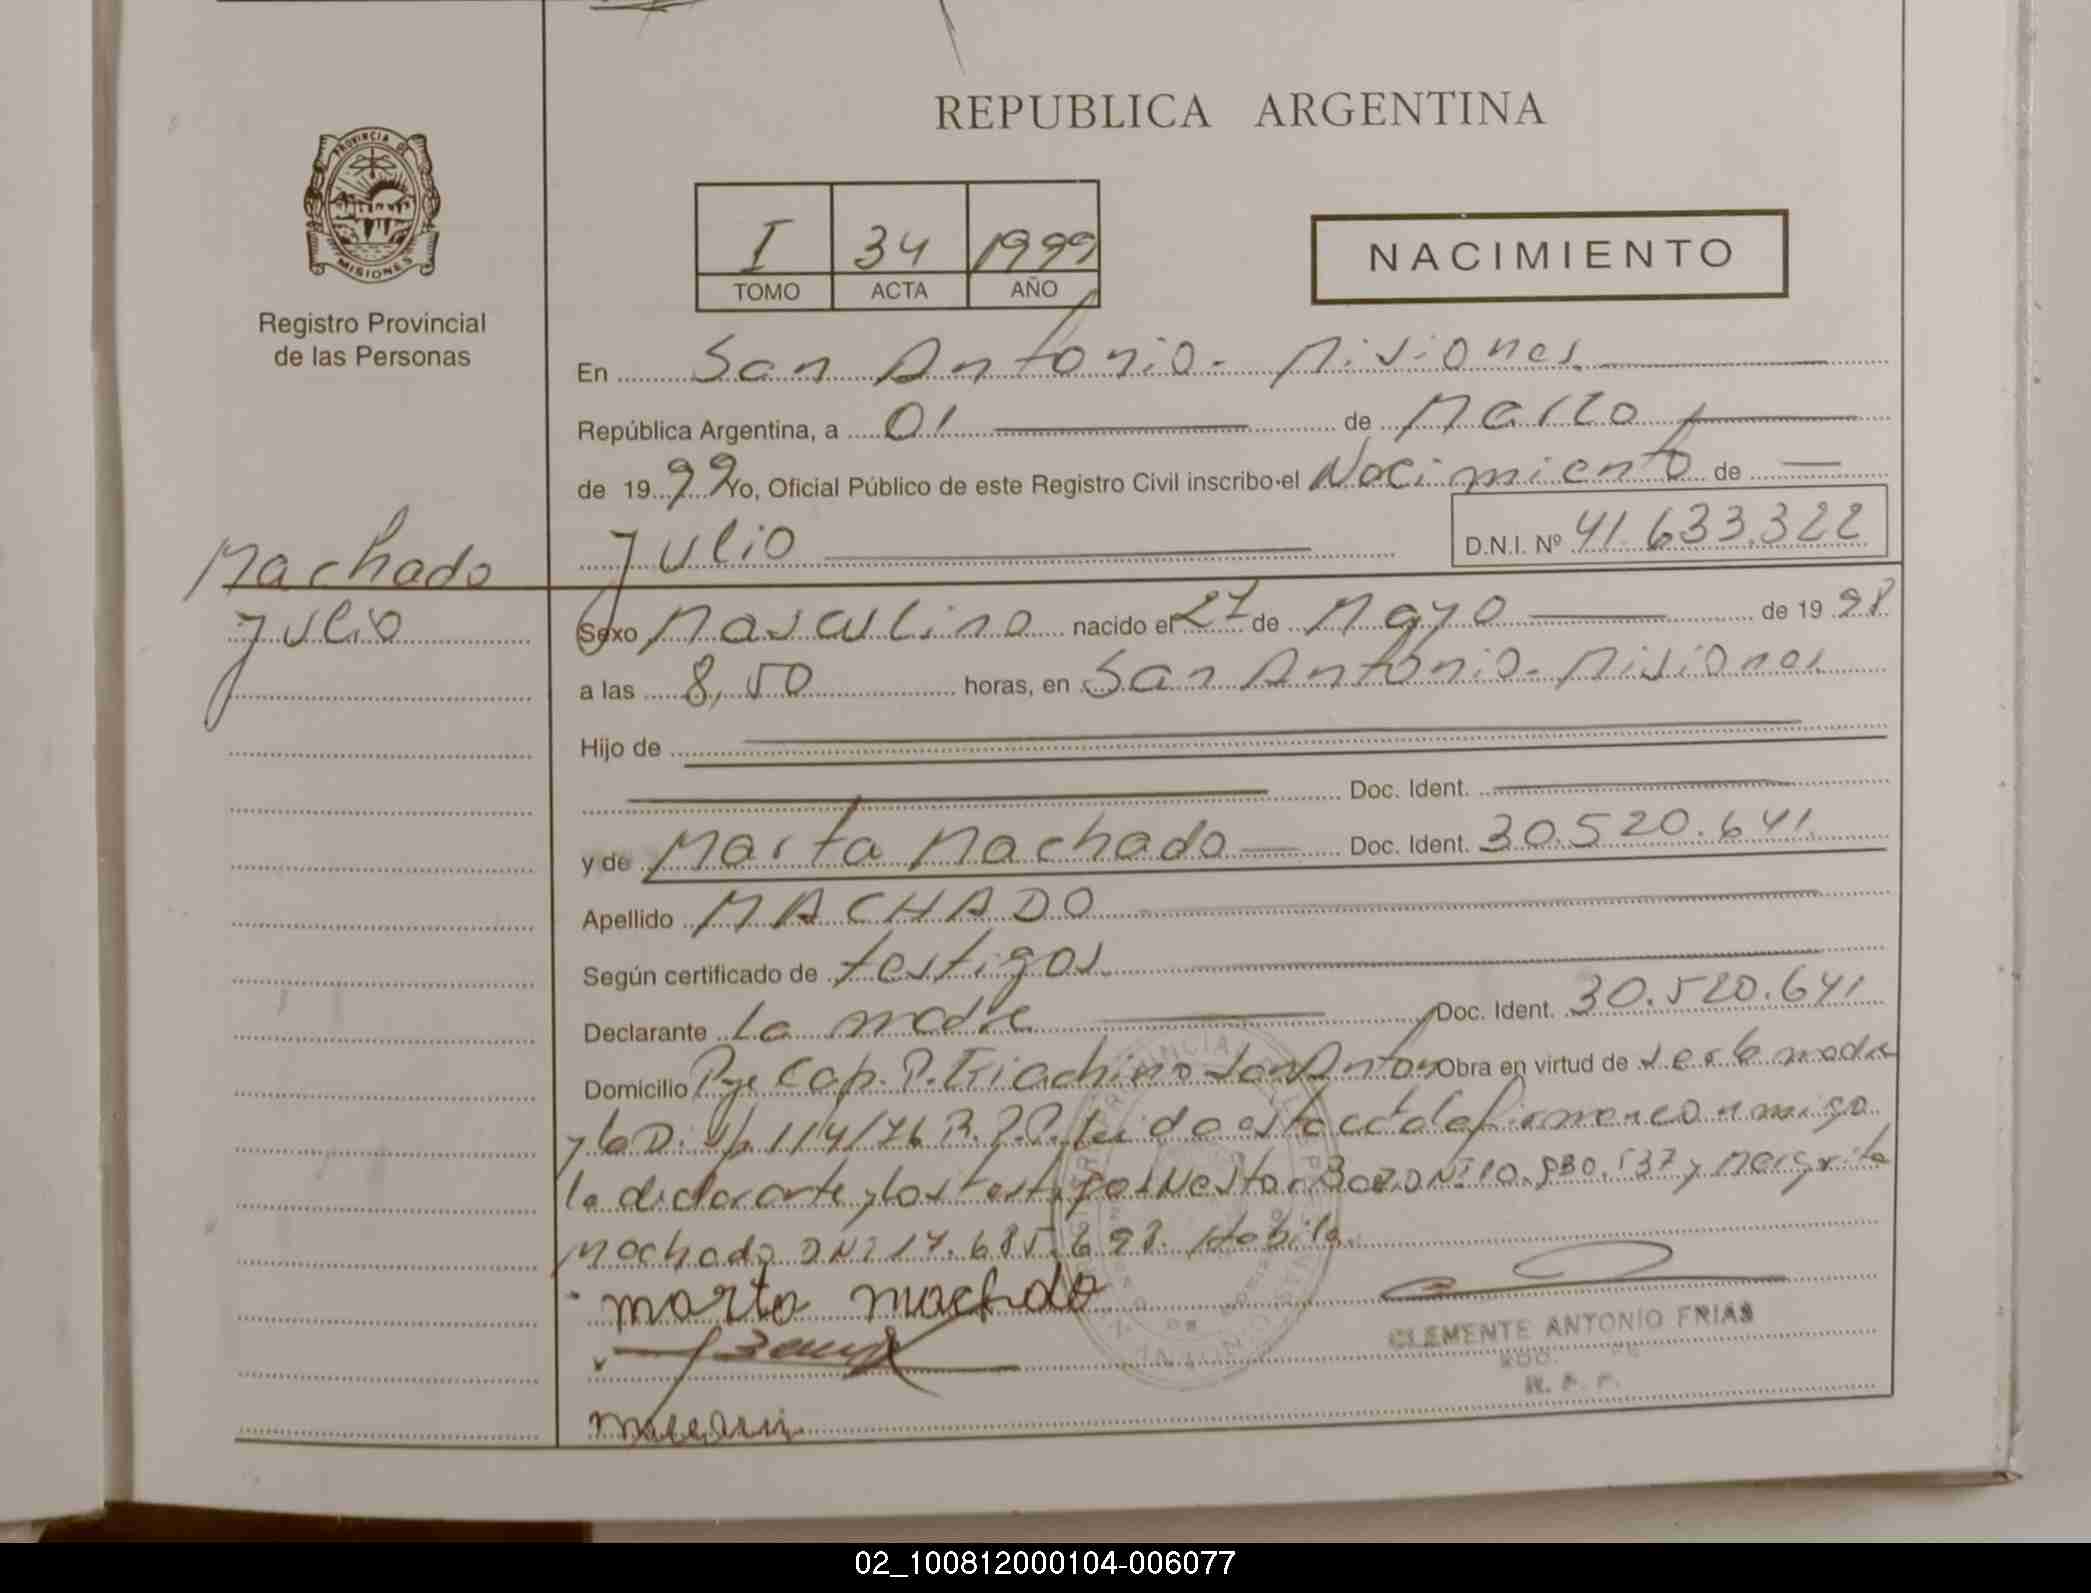 REPUBLICA ARGENTINA
PROVINCIA DE
MISIONES
Registro Provincial
de las Personas
I 34 1999
TOMO ACTA AÑO
NACIMIENTO
En San Antonio - Misiones
República Argentina, a 01 de Marzo
de 19 99 Yo, Oficial Público de este Registro Civil inscribo el Nacimiento de
Julio
D.N.I. Nº 41.633.322
Machado
Julio
Sexo Masculino nacido el 27 de Mayo de 19 98
a las 8,50 horas, en San Antonio - Misiones
Hijo de
Doc. Ident.
y de Marta Machado Doc. Ident. 30.520.641
Apellido MACHADO
Según certificado de testigos
Declarante La madre Doc. Ident. 30.520.641
Domicilio Pje Cap. P. San Anton Obra en virtud de ser la madre
y la Disp. 114/76 R.P.P. Leida esta acta la firman conmigo
la declarante y los testigos Nestor DNI 10. y Margarita
Machado DNI 17.685.698. Habila.
marta machado
CLEMENTE ANTONIO FRIAS
R. P. P.
02_100812000104-006077